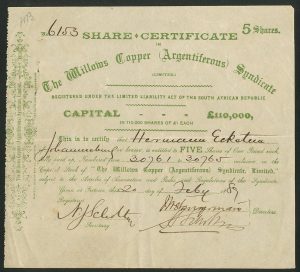 No. 6153 SHARE CERTIFICATE 5 Shares.
IN
The Willows Copper (Argentiferous) Syndicate
(LIMITED)
REGISTERED UNDER THE LIMITED LIABILITY ACT OF THE SOUTH AFRICAN REPUBLIC
CAPITAL £110,000,
IN 110,000 SHARES OF £1 EACH
This is to certify that Hermann Eckstein
Johannesburg is entitled to FIVE Shares of One Pound each,
fully paid up, Numbered from 30761 to 30765 inclusive in the
Capital Stock of The Willows Copper (Argentiferous) Syndicate Limited,
subject to the Articles of Association and Rules and Regulations of the Syndicate.
Given at Pretoria this 2 day of Feby 1889
Directors
Secretary